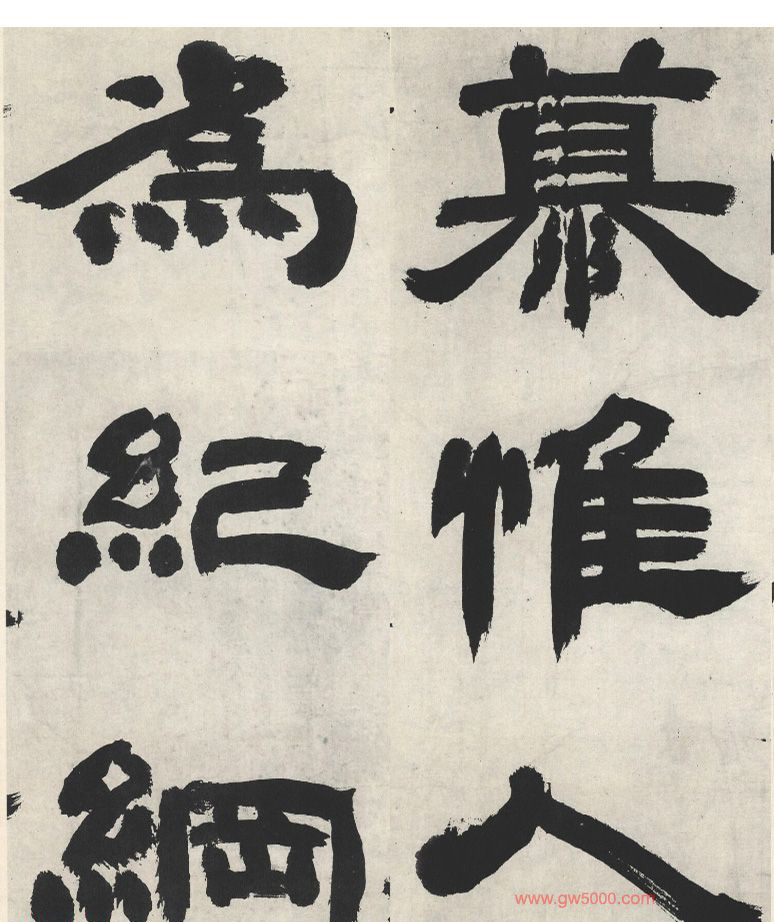 慕惟人
為紀綱
www.gw5000.com